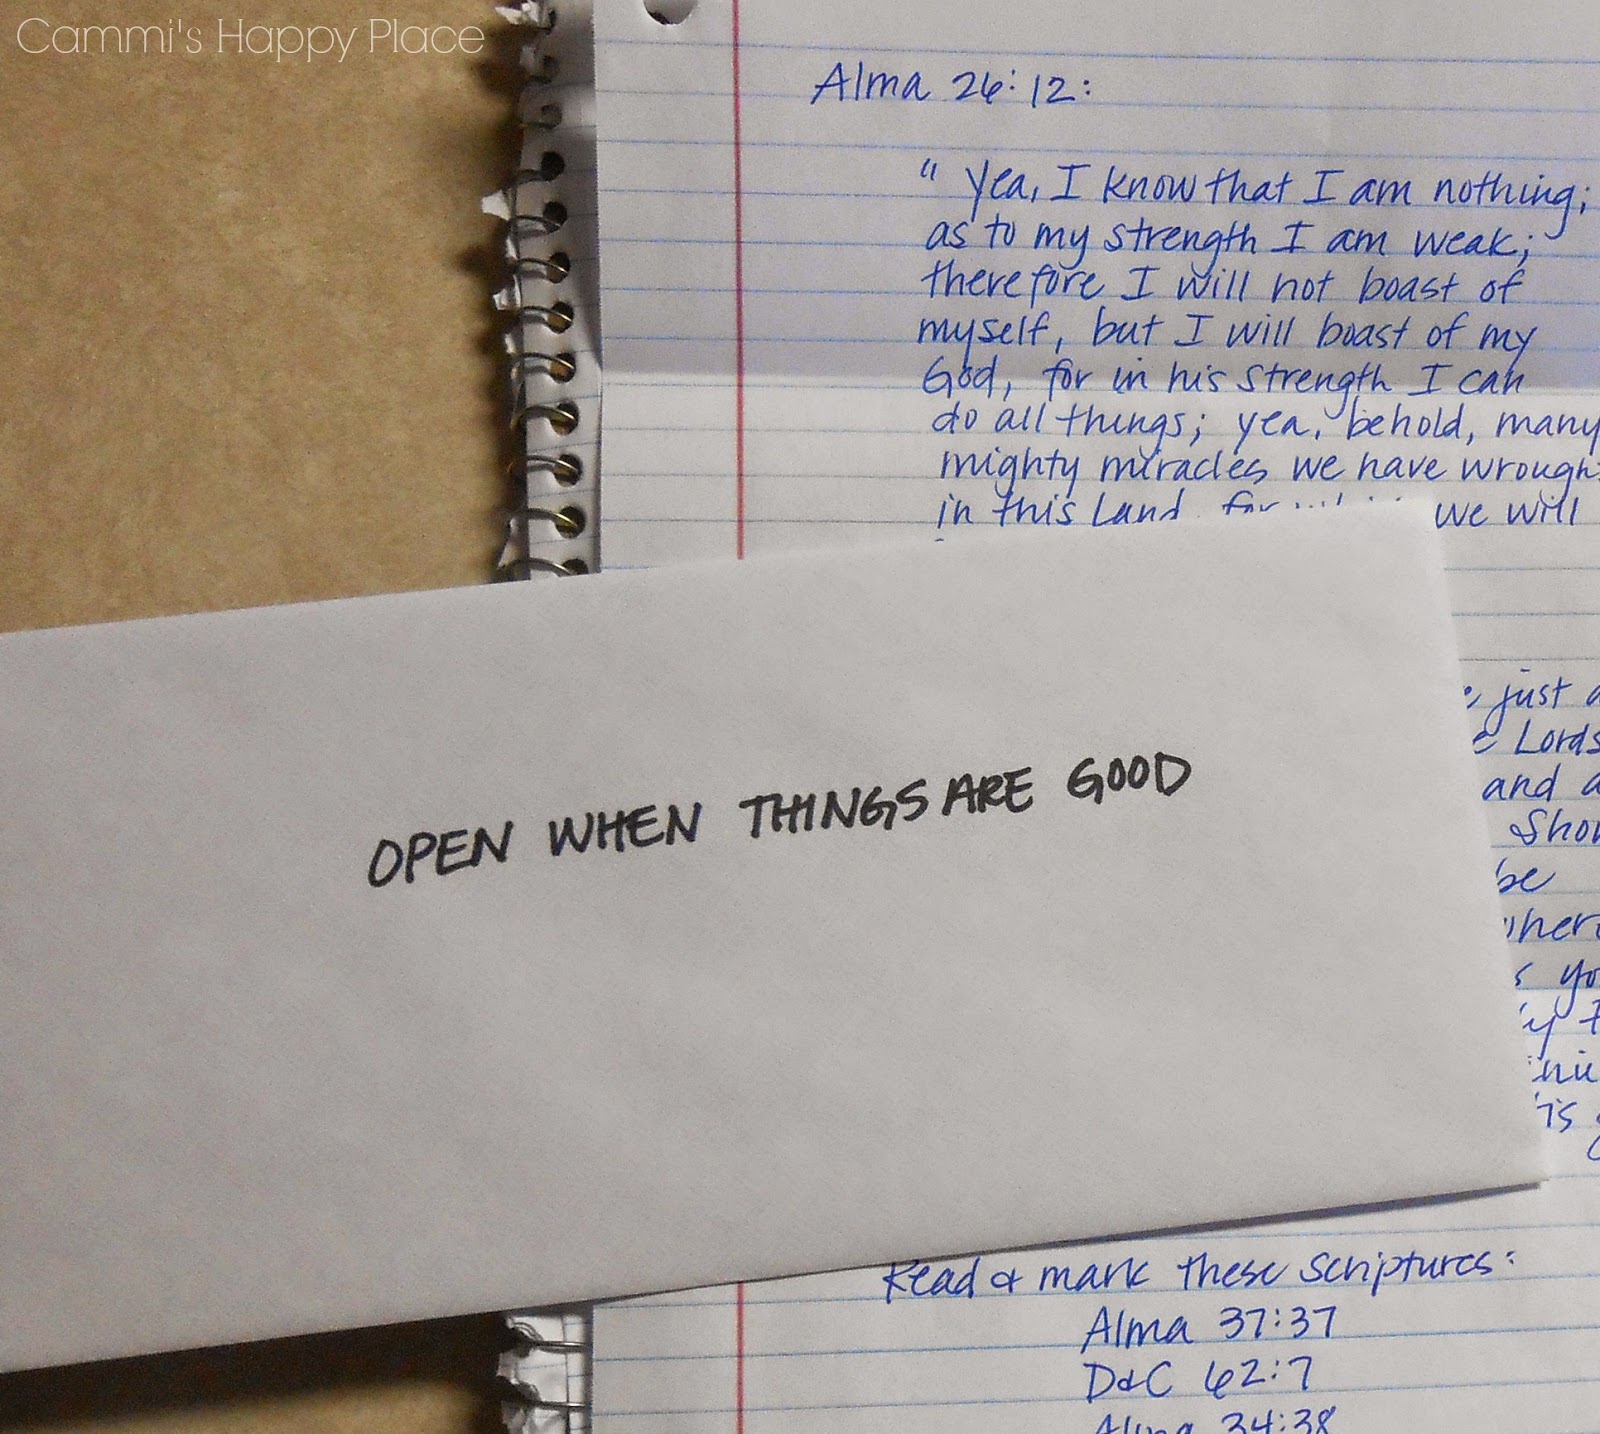 Cammi's Happy Place
Alma 26:12:
" Yea, I know that I am nothing;
as to my strength I am weak;
therefore I will not boast of
myself, but I will boast of my
God, for in his strength I can
do all things; yea, behold, many
mighty miracles we have
in this land, for we will
OPEN WHEN THINGS ARE GOOD
just
Lords
and
be
Read & mark these scriptures:
Alma 37:37
D&C 62:7
Alma 34:38